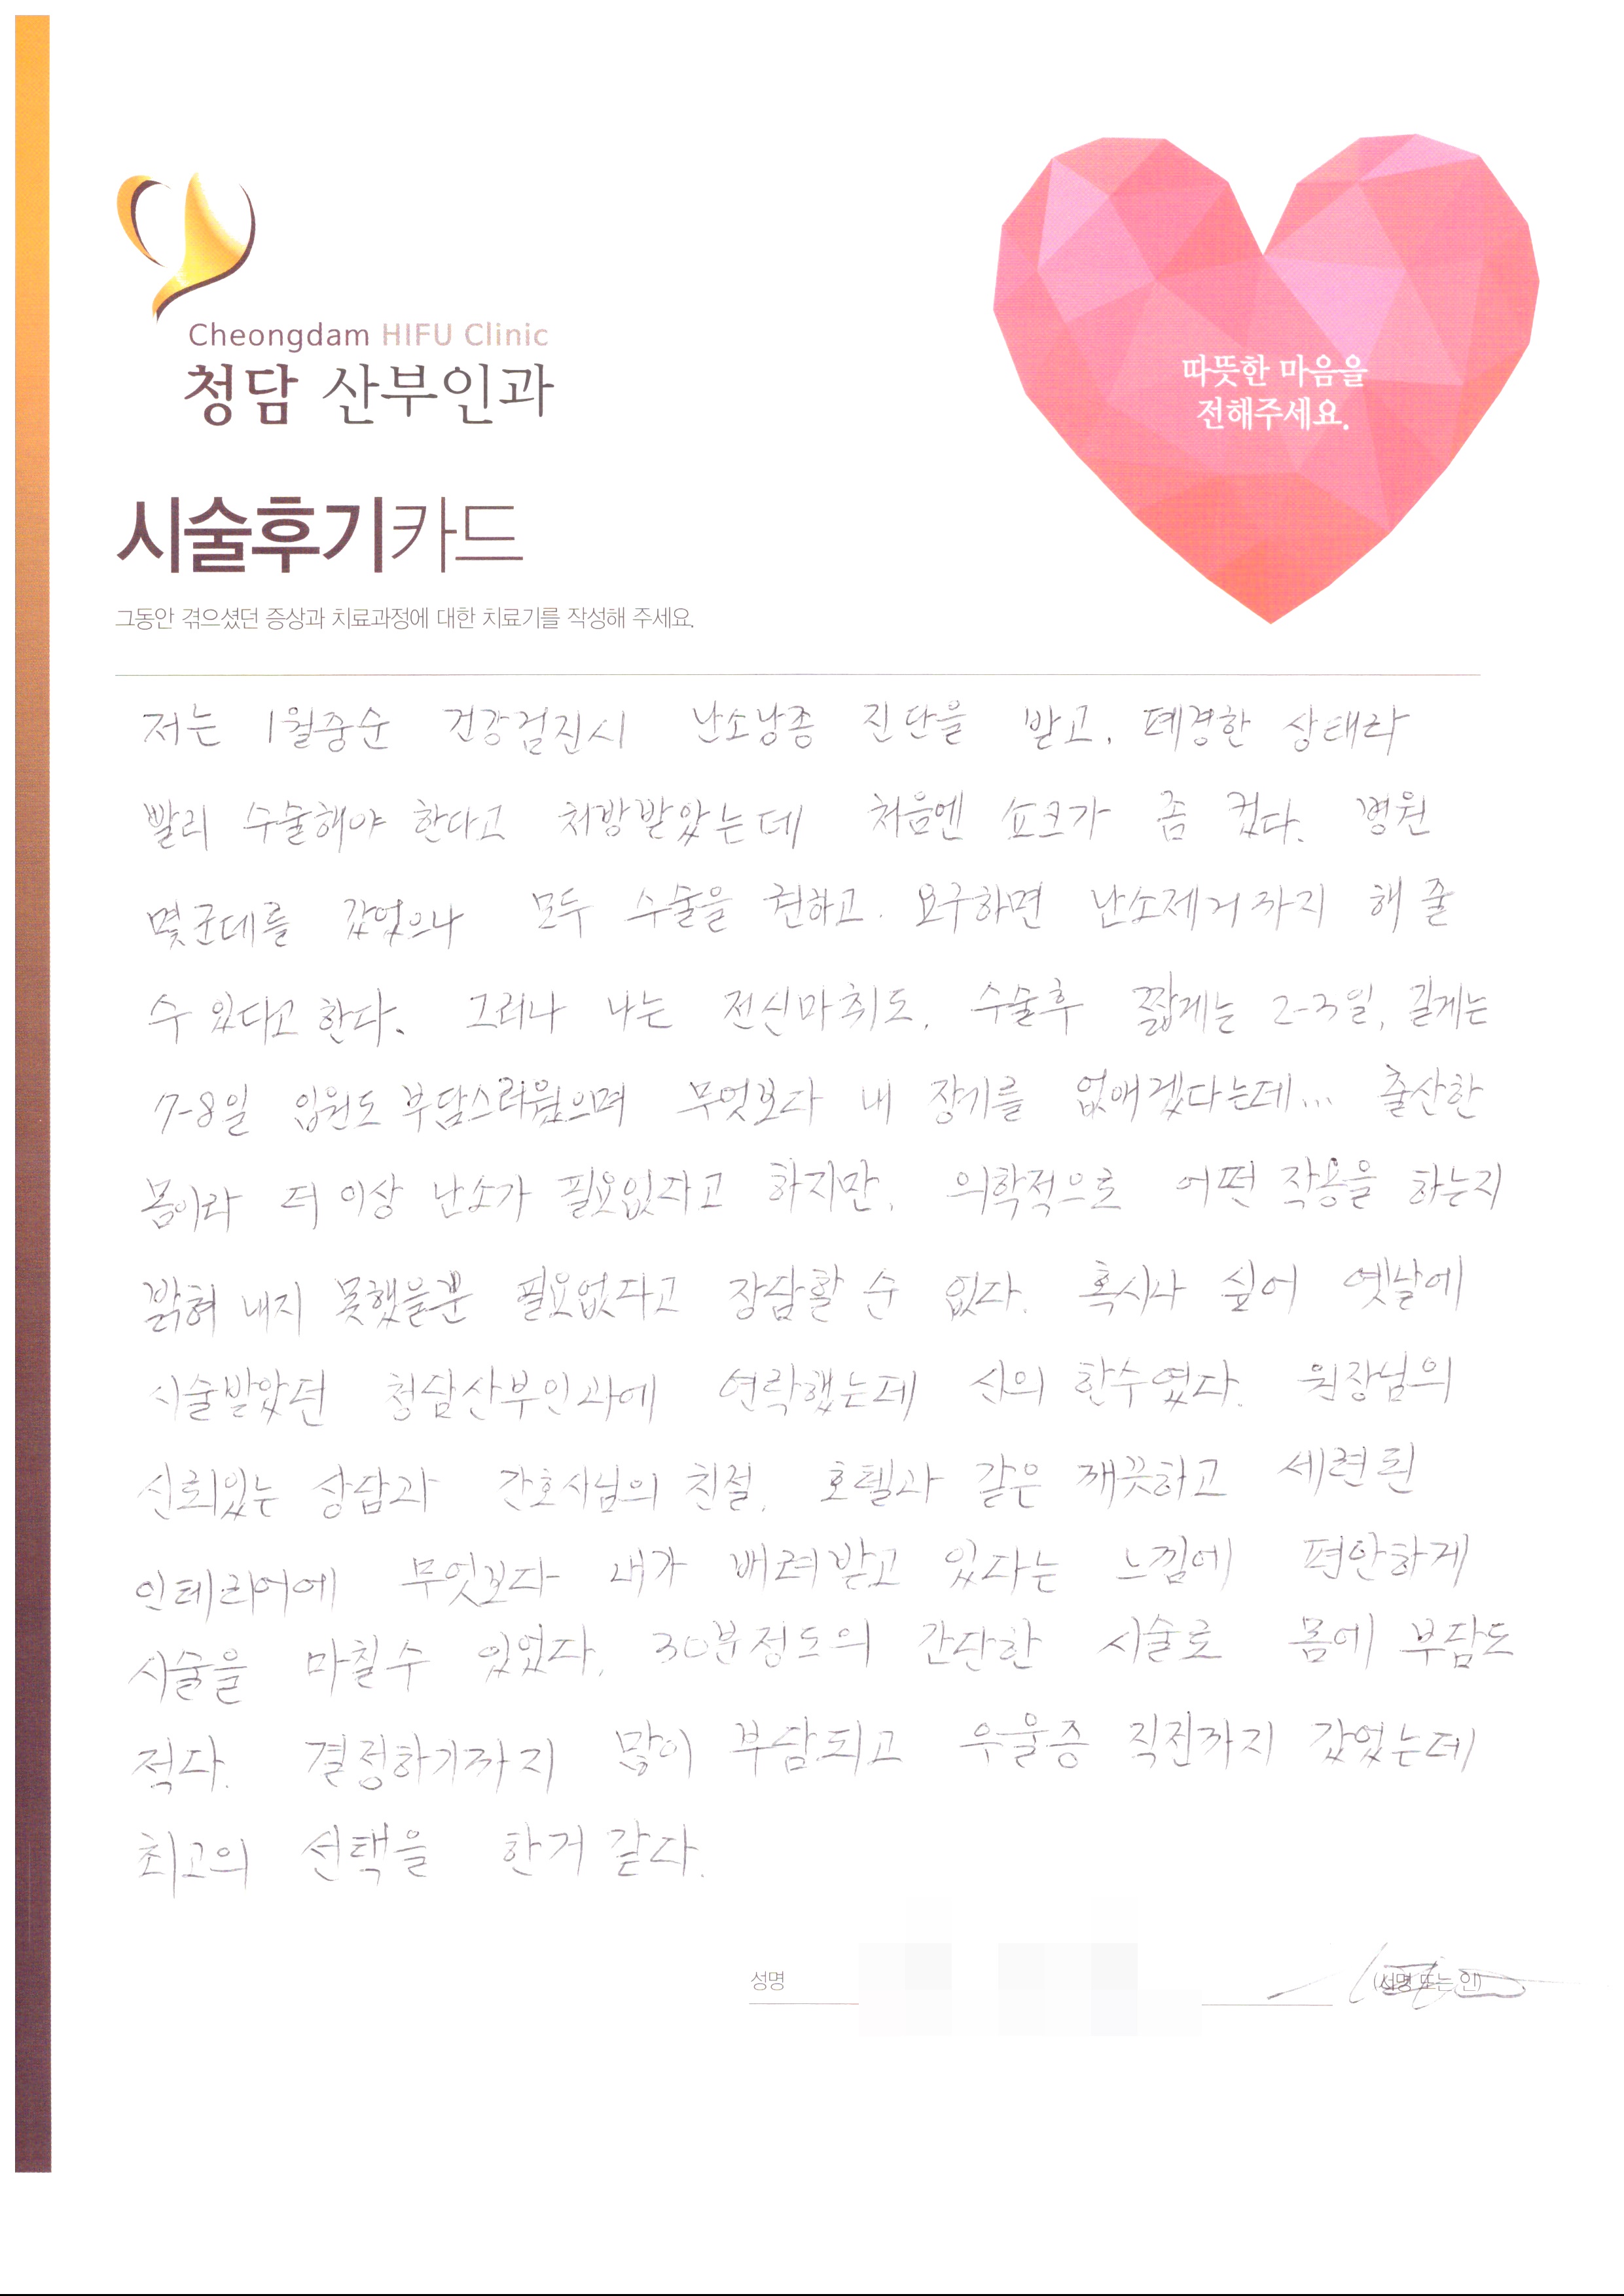 Cheongdam HIFU Clinic
청담 산부인과
따뜻한 마음을
전해주세요.
시술후기카드
그동안 겪으셨던 증상과 치료과정에 대한 치료기를 작성해 주세요.
저는 1월중순 건강검진시 난소낭종 진단을 받고, 폐경한 상태라
빨리 수술해야 한다고 처방받았는데 처음엔 쇼크가 좀 컸다. 병원
몇군데를 갔었으나 모두 수술을 권하고. 요구하면 난소제거까지 해 줄
수 있다고 한다. 그러나 나는 전신마취도, 수술후 짧게는 2-3일, 길게는
7-8일 입원도 부담스러웠으며 무엇보다 내 장기를 없애겠다는데... 출산한
몸이라 더 이상 난소가 필요없다고 하지만, 의학적으로 어떤 작용을 하는지
밝혀 내지 못했을뿐 필요없다고 장담할 순 없다. 혹시나 싶어 옛날에
시술받았던 청담산부인과에 연락했는데 신의 한수였다. 원장님의
신뢰있는 상담과 간호사님의 친절, 호텔과 같은 깨끗하고 세련된
인테리어에 무엇보다 내가 배려받고 있다는 느낌에 편안하게
시술을 마칠수 있었다. 30분정도의 간단한 시술로 몸에 부담도
적다. 결정하기까지 많이 부담되고 우울증 직전까지 갔었는데
최고의 선택을 한거 같다.
성명 (성명 또는 인)